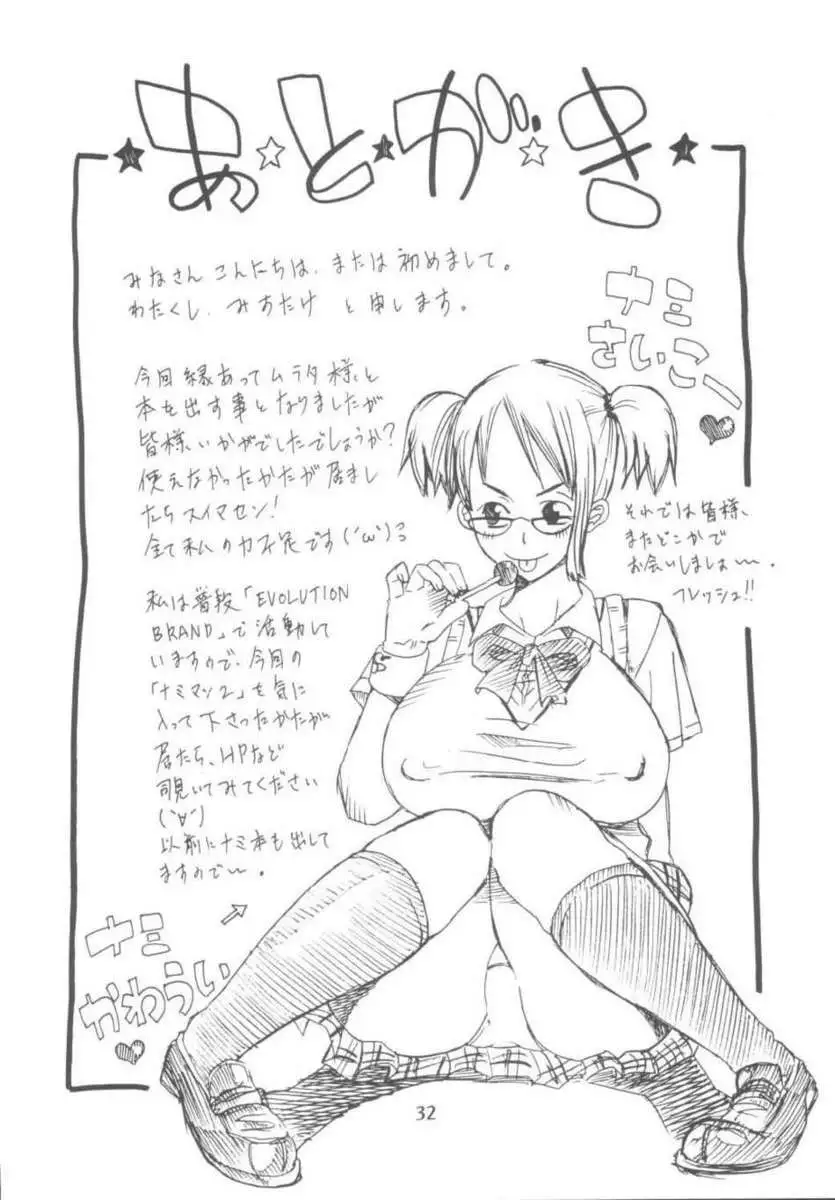 あとがき
みなさん こんにちは、または初めまして。
わたくし、みすたけ と申します。
ナミ
さいこー
今回縁あってムラタ様と
本を出す事となりましたが
皆様、いかがでしたでしょうか?
使えなかったかたが居まし
たらスイマセン!
全て私の力不足です(´ω`)
私は普段「EVOLUTION
BRAND」で活動して
いますので、今回の
「ナミマン2」を気に
入って下さったかたが
居たら、HPなど
覗いてみてください
(´∀`)
以前にナミ本も出して
ますので〜。
それでは皆様、
またどこかで
お会いしましょ〜。
フレッシュ!!
ナミ
かわうぃい
32